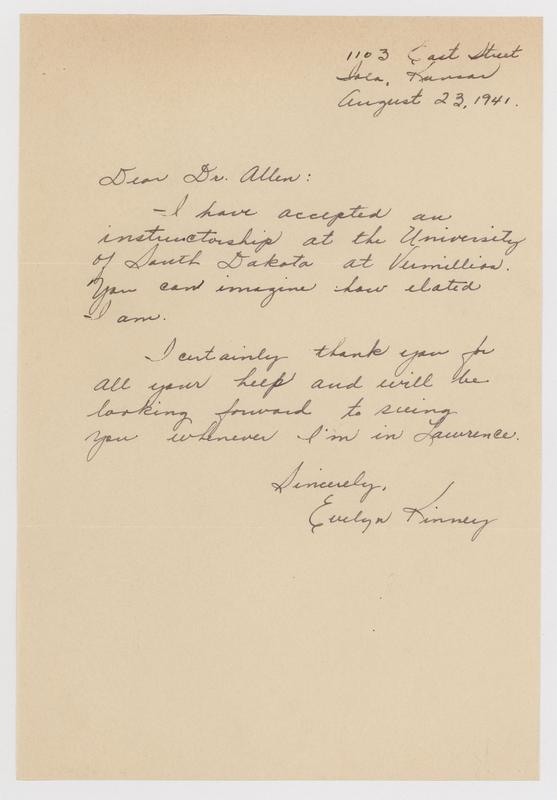 1103 East Street
Iola, Kansas
August 23, 1941.
Dear Dr. Allen:
I have accepted an
instructorship at the University
of South Dakota at Vermillion.
You can imagine how elated
I am.
I certainly thank you for
all your help and will be
looking forward to seeing
you whenever I'm in Lawrence.
Sincerely,
Evelyn Kinney